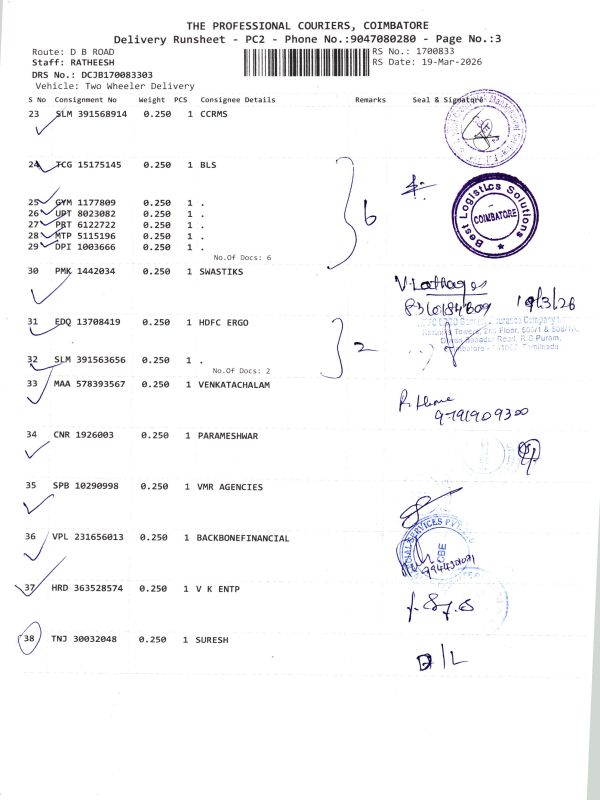 THE PROFESSIONAL COURIERS, COIMBATORE
Delivery Runsheet - PC2 - Phone No.:9047080280 - Page No.:3
Route: D B ROAD
RS No.: 1700833
Staff: RATHEESH
RS Date: 19-Mar-2026
DRS No.: DCJB170083303
Vehicle: Two Wheeler Delivery
S No Consignment No Weight PCS Consignee Details Remarks Seal & Signature
23 SLM 391568914 0.250 1 CCRMS
24 TCG 15175145 0.250 1 BLS
25 GYM 1177809 0.250 1 .
26 UPT 8023082 0.250 1 .
27 PRT 6122722 0.250 1 .
28 MTP 5115196 0.250 1 .
29 DPI 1003666 0.250 1 .
No.Of Docs: 6
6
Best Logistics Solutions
COIMBATORE
30 PMK 1442034 0.250 1 SWASTIKS
19/3/26
31 EDQ 13708419 0.250 1 HDFC ERGO
32 SLM 391563656 0.250 1 .
No.Of Docs: 2
2
33 MAA 578393567 0.250 1 VENKATACHALAM
9791909300
34 CNR 1926003 0.250 1 PARAMESHWAR
35 SPB 10290998 0.250 1 VMR AGENCIES
36 VPL 231656013 0.250 1 BACKBONEFINANCIAL
SERVICES PVT
CBE
37 HRD 363528574 0.250 1 V K ENTP
38 TNJ 30032048 0.250 1 SURESH
D/L